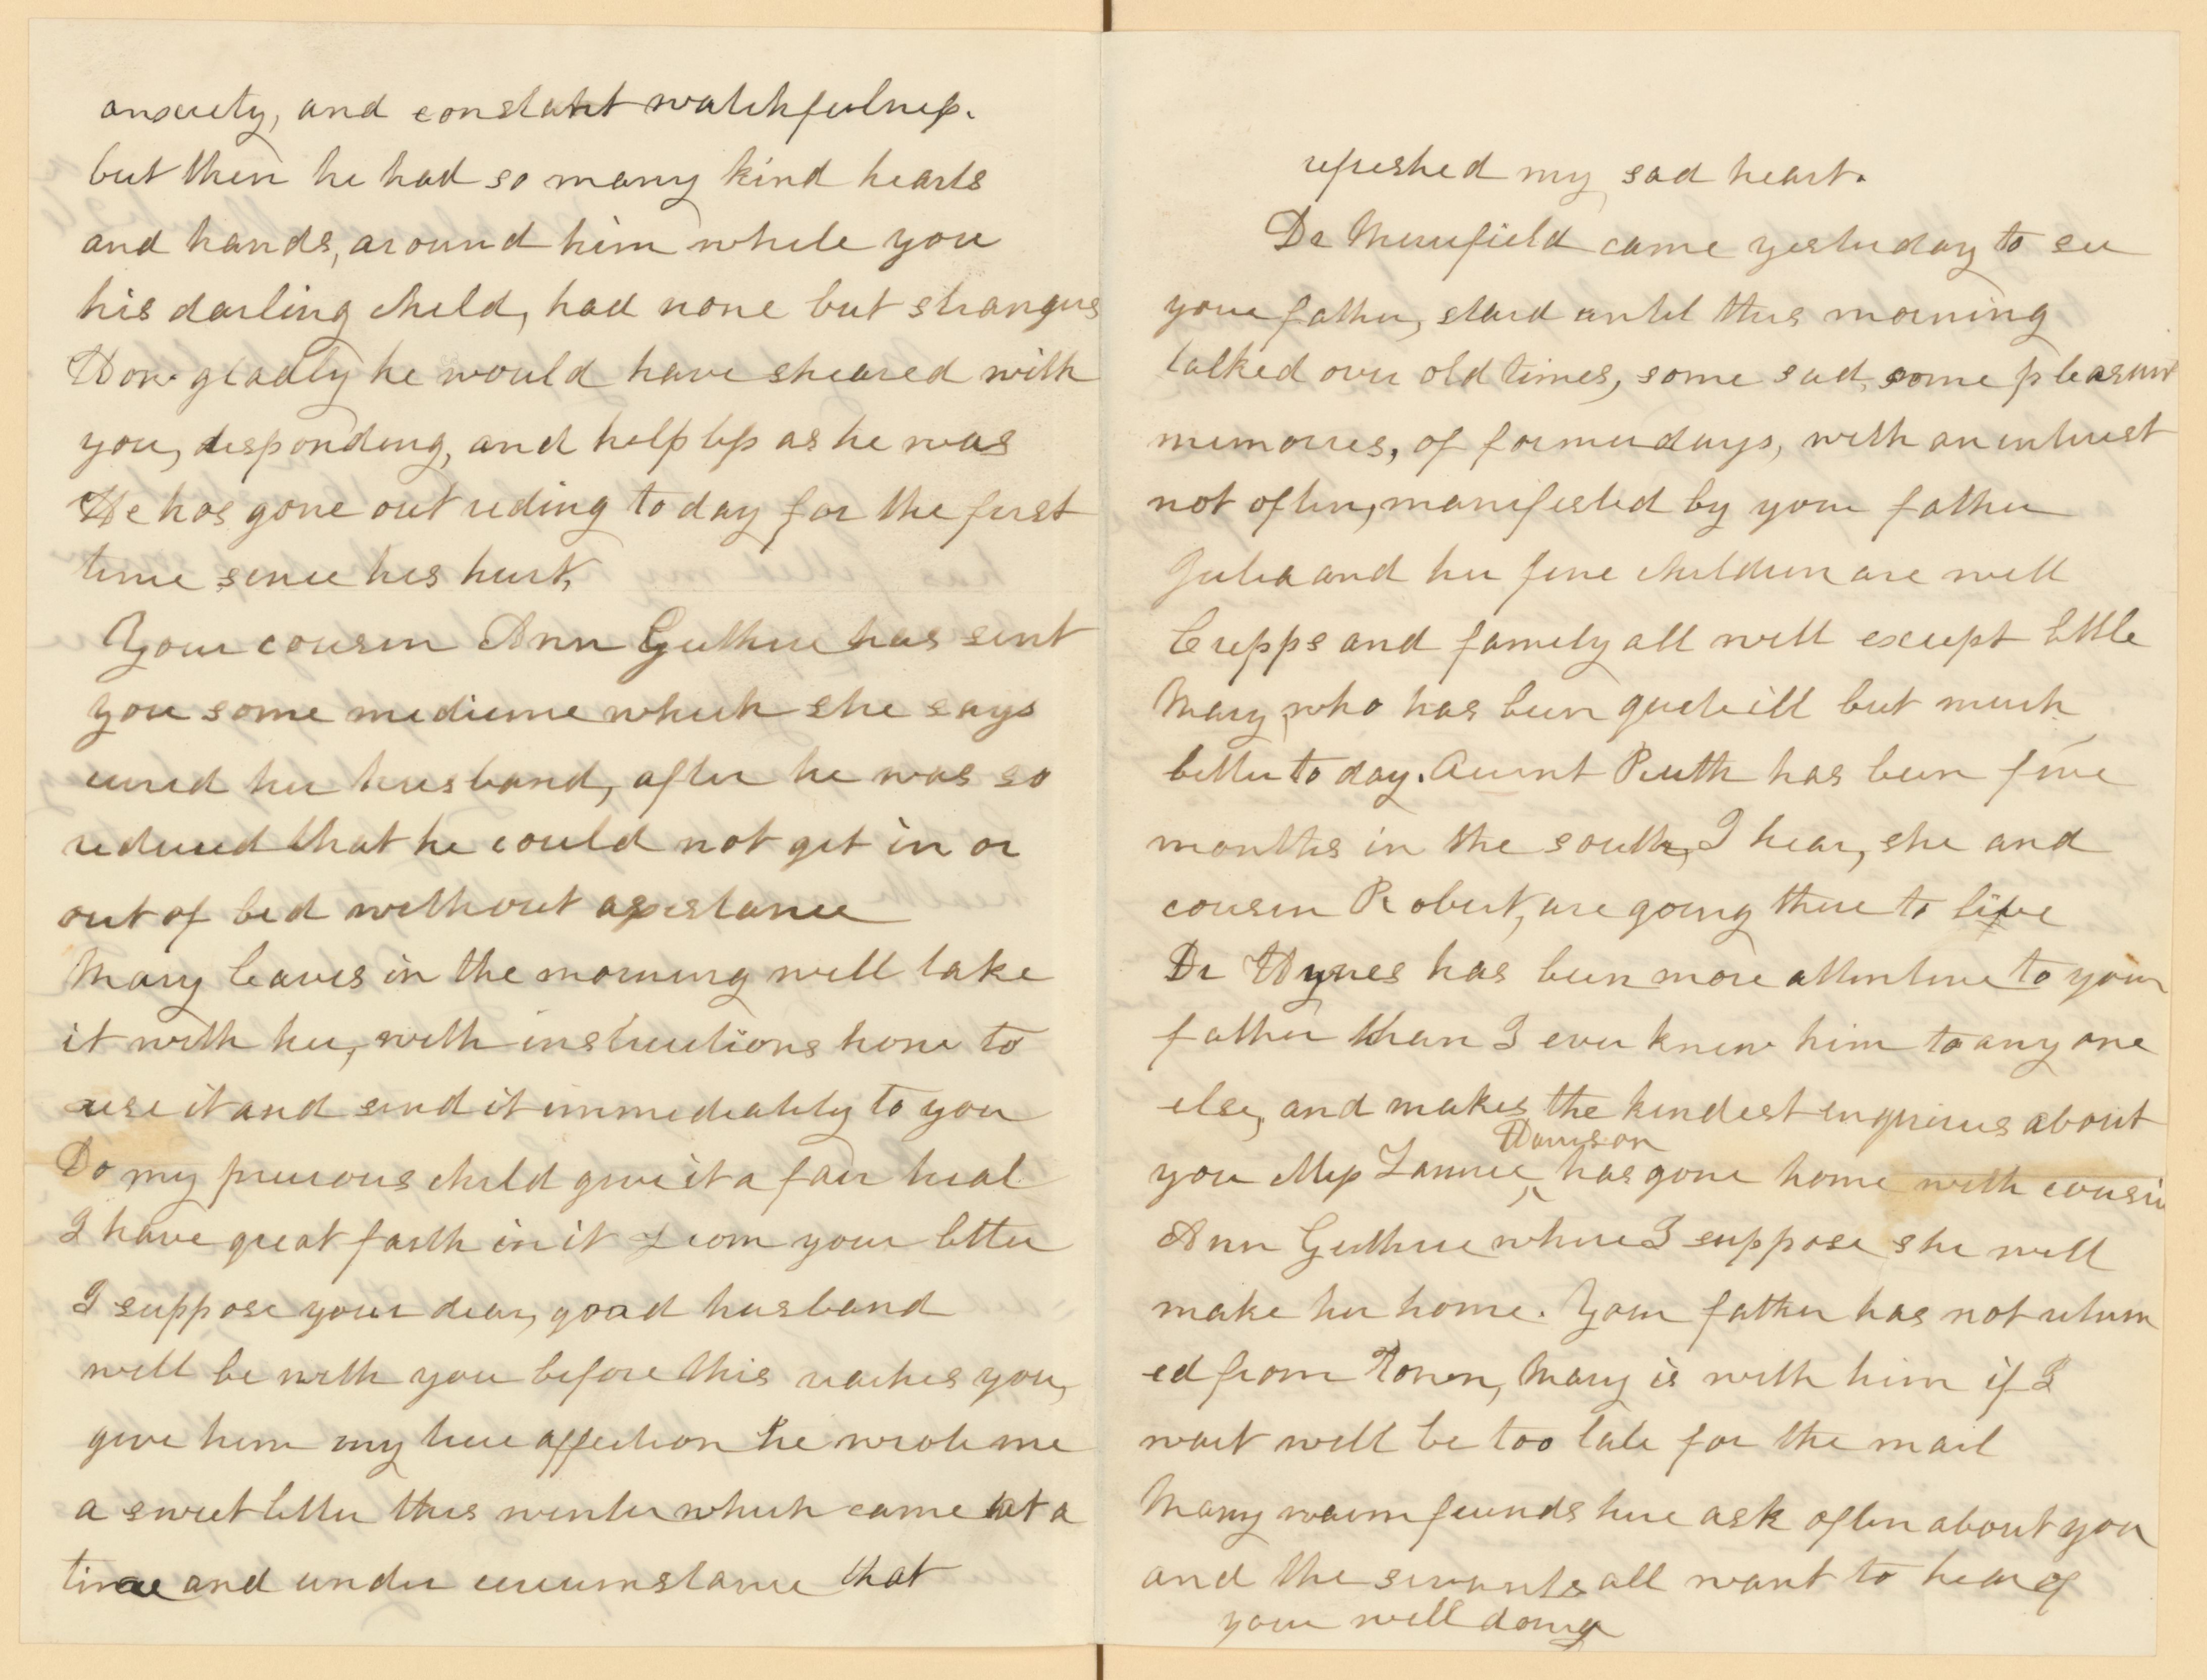 anxiety, and constant watchfulness.
but then he had so many kind hearts
and hands, around him while you
his darling child, had none but strangers
How gladly he would have sheared with
you, desponding, and helpless as he was
He has gone out riding to day for the first
time since his hurt,
Your cousin Ann Guthrie has sent
you some medicine which she says
cured her husband, after he was so
reduced that he could not get in or
out of bed without assistance
Mary leaves in the morning will take
it with her, with instructions how to
use it and send it immediately to you
Do my precious child give it a fair trial
I have great faith in it From your letter
I suppose your dear, good husband
will be with you before this reaches you,
give him my true affection he wrote me
a sweet letter this winter which came at a
time and under circumstance that
refreshed my sad heart.
Dr Merrifield came yesterday to see
your father, staid until this morning
talked over old times, some sad, some pleasant
memories, of former days, with an interest
not often, manifested by your father
Julia and her fine children are well
Cripps and family all well except little
Mary, who has been quite ill but much
better to day. Aunt Ruth has been five
months in the south, I hear, she and
cousin Robert, are going there to live
Dr Hynes has been more attentive to your
father than I ever knew him to any one
else, and makes the kindest inquiries about
Davison
you Miss Fannie ‸ has gone home with cousin
Ann Guthrie where I suppose she will
make her home. Your father has not return
ed from Town, Mary is with him if I
wait will be too late for the mail
Many warm friends here ask often about you
and the servants all want to hear of
your well doing